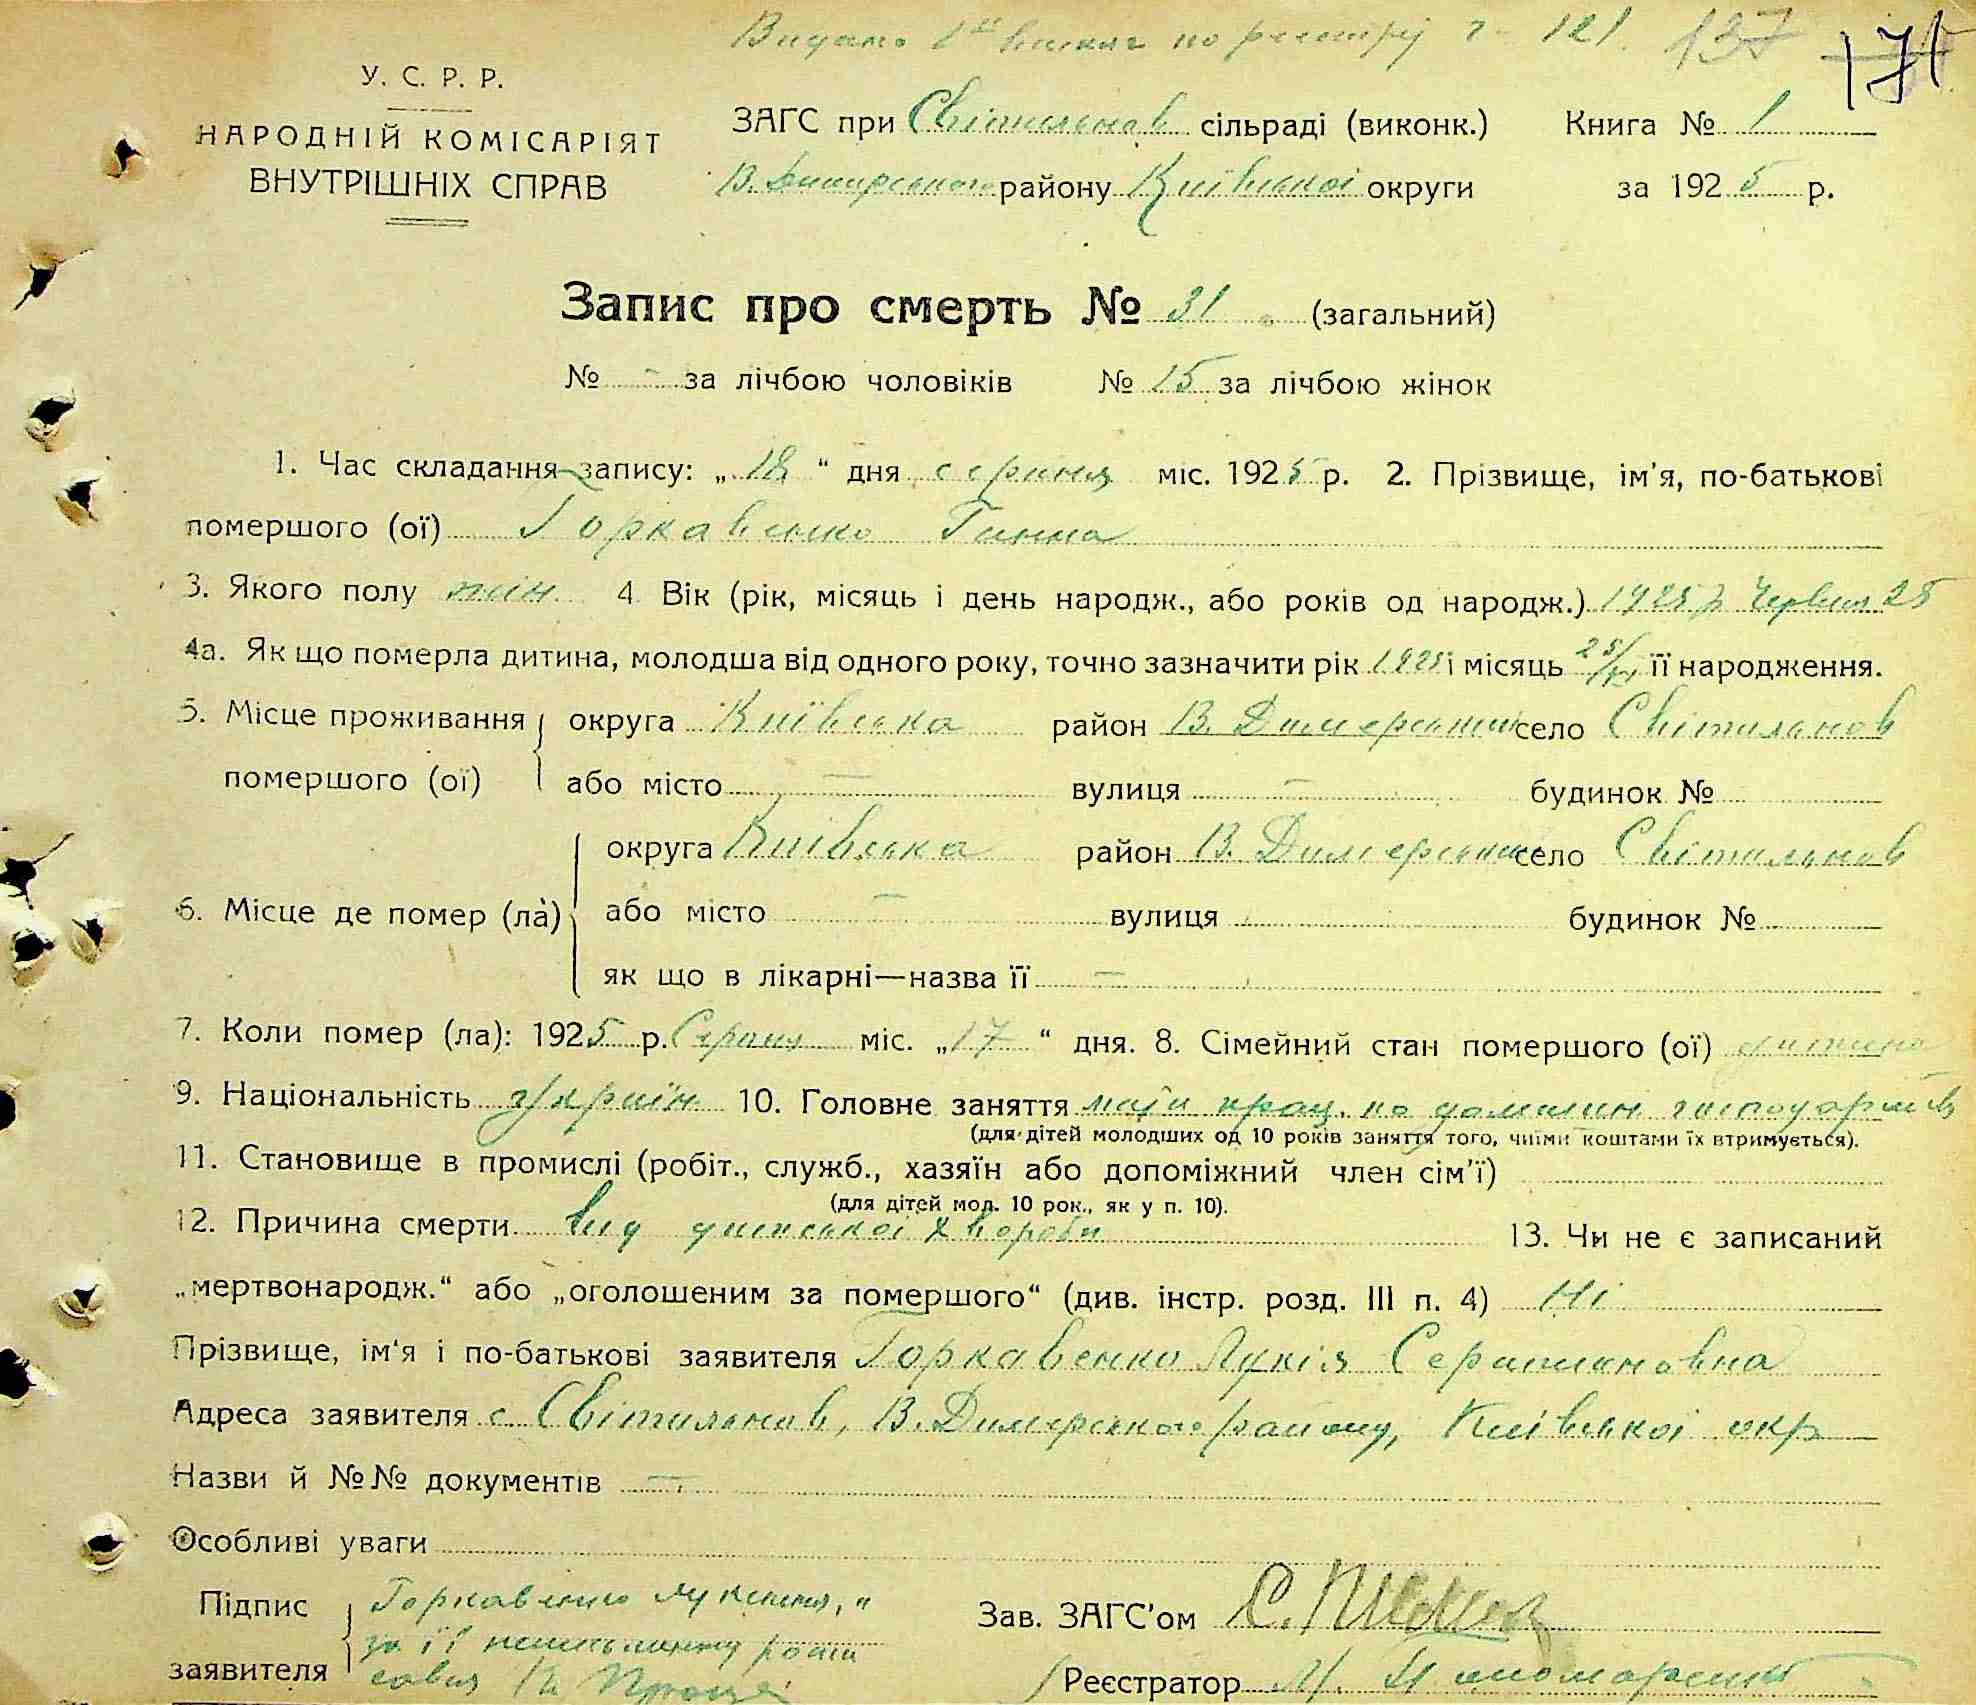 Видано 1й витяг по реєстру г - 121. 137 171
У. С. Р. Р.
НАРОДНІЙ КОМІСАРІЯТ
ВНУТРІШНІХ СПРАВ
ЗАГС при Світильнов сільраді (виконк.) Книга № 1
В. Димерського району Київської округи за 1925 р.
Запис про смерть № 31 (загальний)
№ - за лічбою чоловіків № 15 за лічбою жінок
1. Час складання запису: „18“ дня серпня міс. 1925 р. 2. Прізвище, ім'я, по-батькові
помершого (ої) Горкавенко Ганна
3. Якого полу жін. 4 Вік (рік, місяць і день народж., або років од народж.) 1925 р. Червня 25
4а. Як що померла дитина, молодша від одного року, точно зазначити рік 1925 і місяць 25/VI її народження.
5. Місце проживання округа Київська район В. Димерський село Світильнов
помершого (ої) або місто — вулиця — будинок №
округа Київська район В. Димерський село Світильнов
6. Місце де помер (ла) або місто — вулиця будинок №
як що в лікарні—назва її —
7. Коли помер (ла): 1925 р. Серпня міс. „17“ дня. 8. Сімейний стан помершого (ої) дитина
9. Національність україн. 10. Головне заняття прац. по
(для дітей молодших од 10 років заняття того, чиїми коштами їх втримується).
11. Становище в промислі (робіт., служб., хазяїн або допоміжний член сім'ї)
(для дітей мол. 10 рок., як у п. 10).
12. Причина смерти вид дитської хвороби 13. Чи не є записаний
„мертвонародж.“ або „оголошеним за помершого“ (див. інстр. розд. III п. 4) Ні
Прізвище, ім'я і по-батькові заявителя Горкавенко Лукія
Адреса заявителя с. Світильнов, В. Димерського району, Київської окр
Назви й №№ документів —
Особливі уваги
Підпис Горкавенко
за її
заявителя
Зав. ЗАГС'ом
Реєстратор Пономаренко